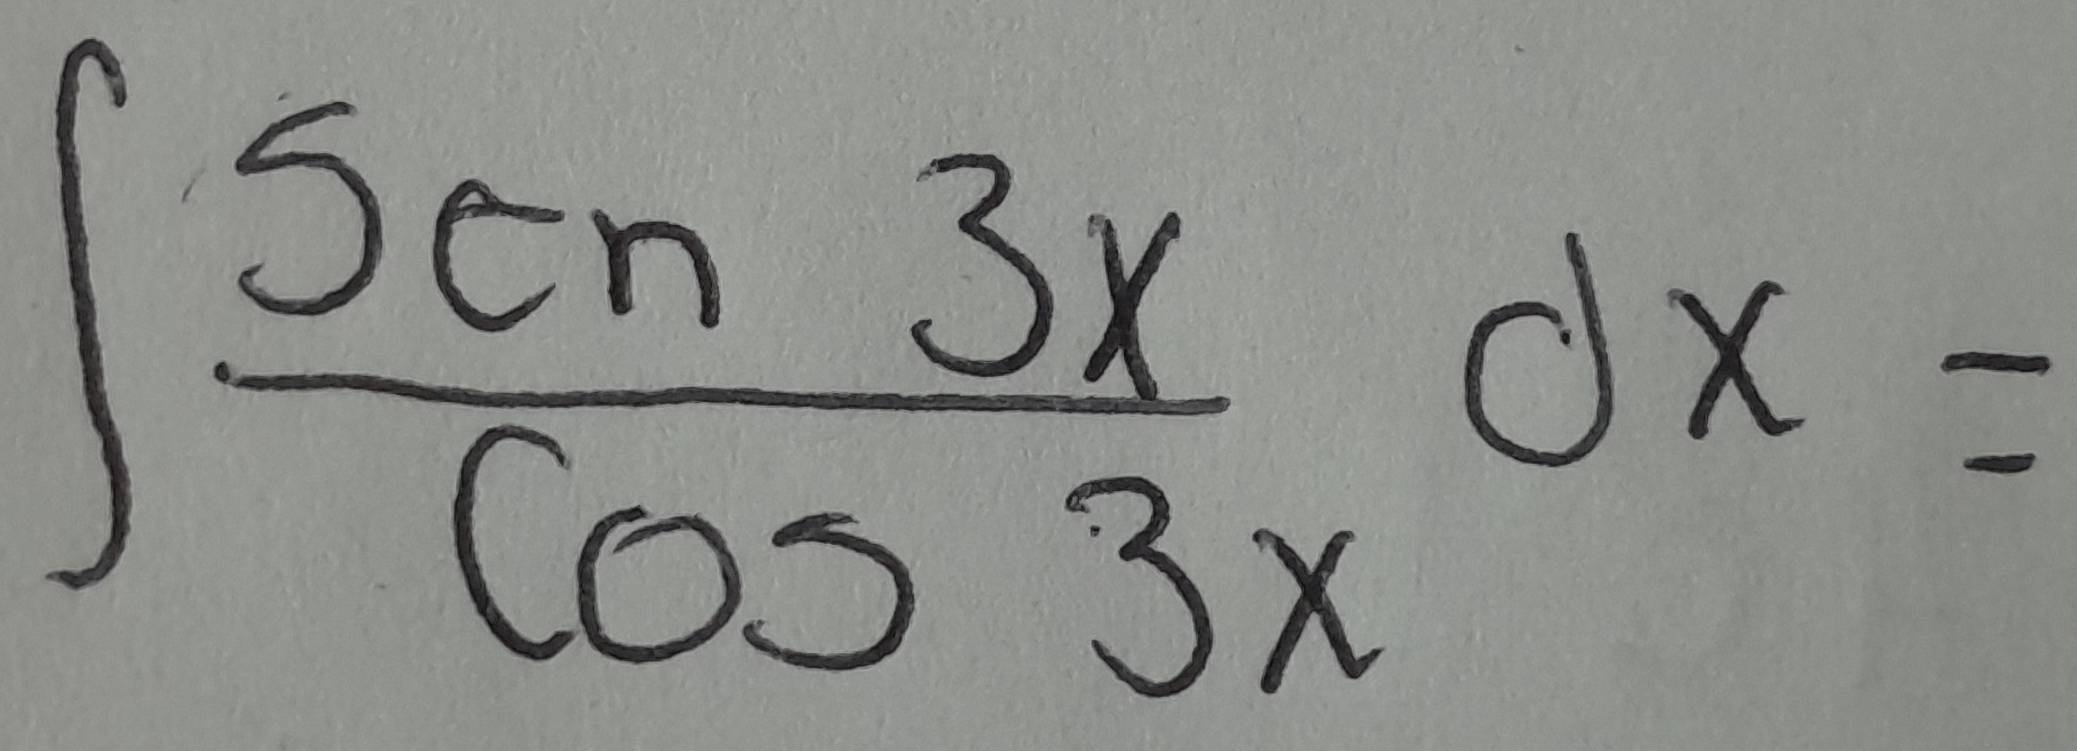 ∫ Sen 3x / Cos 3x dx =